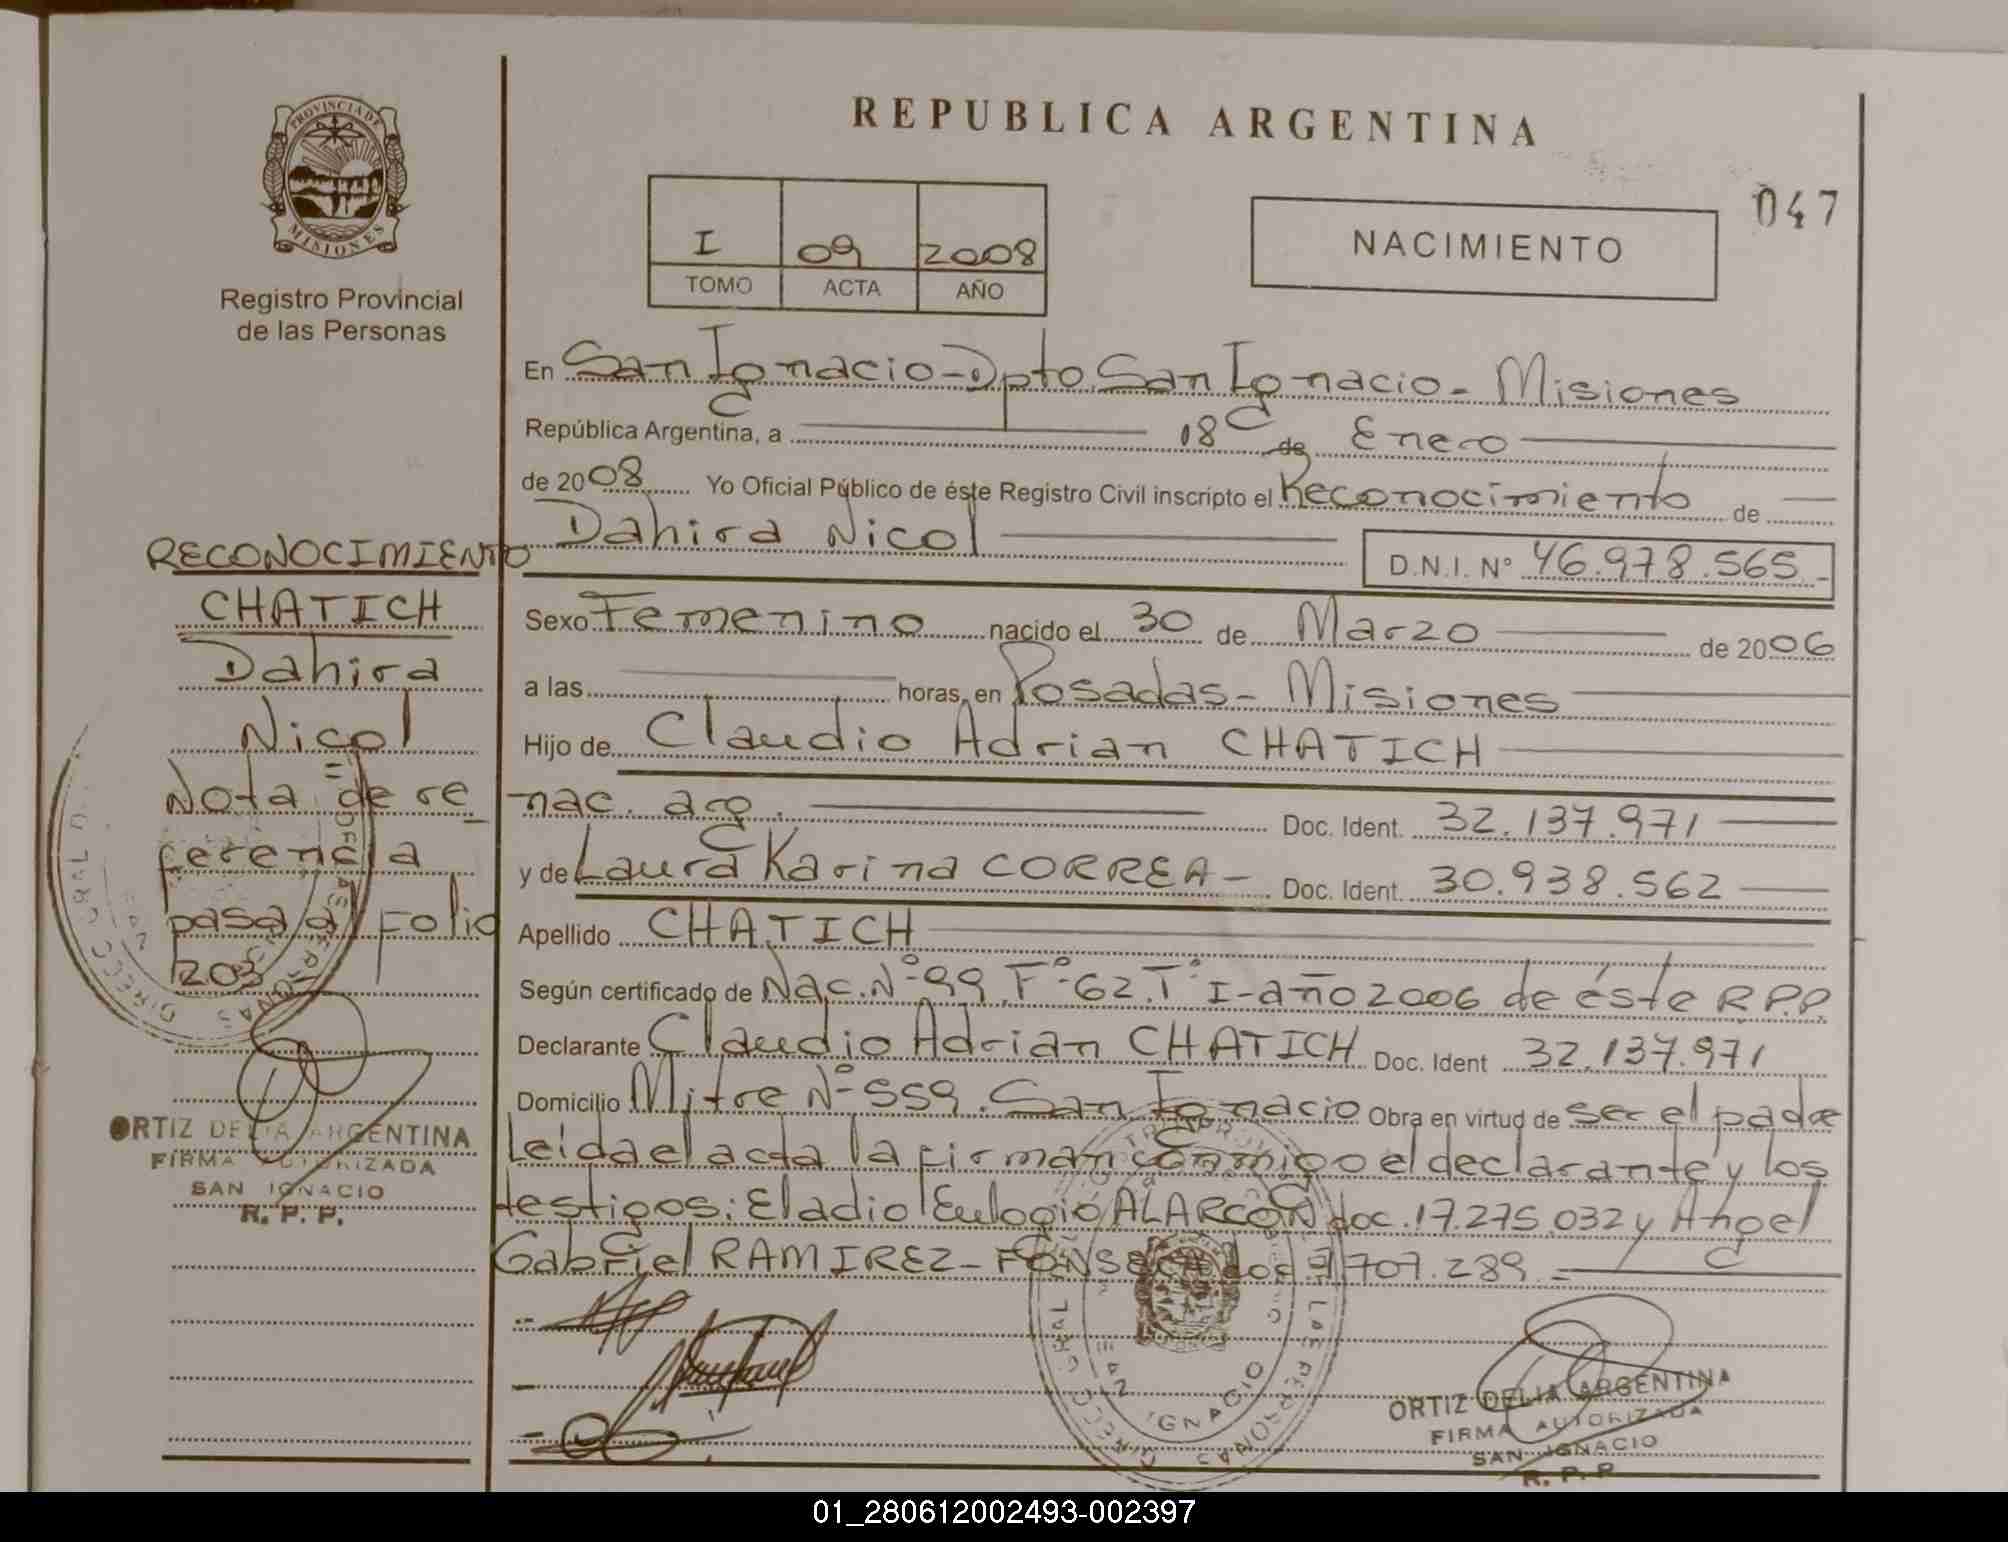 PROVINCIA DE
MISIONES
Registro Provincial
de las Personas
REPUBLICA ARGENTINA
047
I 09 2008
TOMO ACTA AÑO
NACIMIENTO
En San Ignacio - Dpto San Ignacio - Misiones
República Argentina, a 18 de Enero
de 2008 Yo Oficial Público de éste Registro Civil inscripto el Reconocimiento de
Dahira Nicol
D.N.I. N° 46.978.565.-
Sexo Femenino nacido el 30 de Marzo de 2006
a las horas, en Posadas - Misiones
Hijo de Claudio Adrian CHATICH
nac. arg. Doc. Ident. 32.137.971
y de Laura Karina CORREA - Doc. Ident. 30.938.562
Apellido CHATICH
Según certificado de Nac. N° 99. F° 62. T° I - año 2006 de éste R.P.P.
Declarante Claudio Adrian CHATICH Doc. Ident 32.137.971
Domicilio Mitre N° 559. San Ignacio Obra en virtud de ser el padre
Leida el acta la firman conmigo el declarante y los
testigos: Eladio Eulogio ALARCÓN doc. 17.275.032 y Angel
Gabriel RAMIREZ - FONSECA doc 707.289 -
RECONOCIMIENTO
CHATICH
Dahira
Nicol
Nota de re
ferencia
pasa al Folio
203
ORTIZ DELIA ARGENTINA
FIRMA AUTORIZADA
SAN IGNACIO
R. P. P.
IGNACIO
ORTIZ DELIA ARGENTINA
FIRMA AUTORIZADA
SAN IGNACIO
R. P. P
01_280612002493-002397